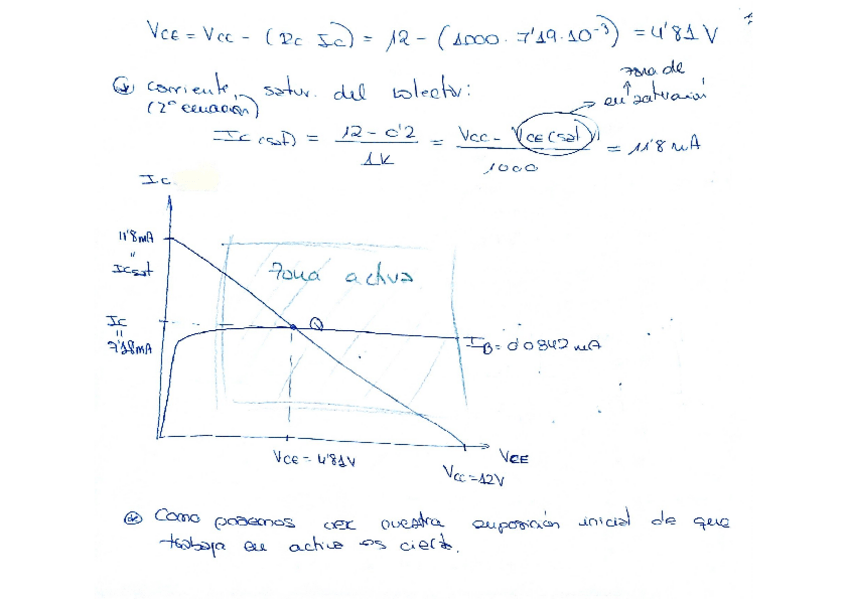 VCE = VCC - (RC IC) = 12 - (1000 · 7'19·10⁻³) = 4'81 V
corriente satur. del colector:
(2ª ecuación)
zona de
en saturación
IC (sat) = 12 - 0'2 / 1K = VCC - VCE(sat) / 1000 = 11'8 mA
IC
11'8mA
"
ICsat
Zona activa
IC
"
7'18mA
Q
IB = 0'0842 mA
VCE = 4'81V
VCE
VCC = 12V
Como podemos ver nuestra suposición inicial de que
trabaja en activa es cierta.